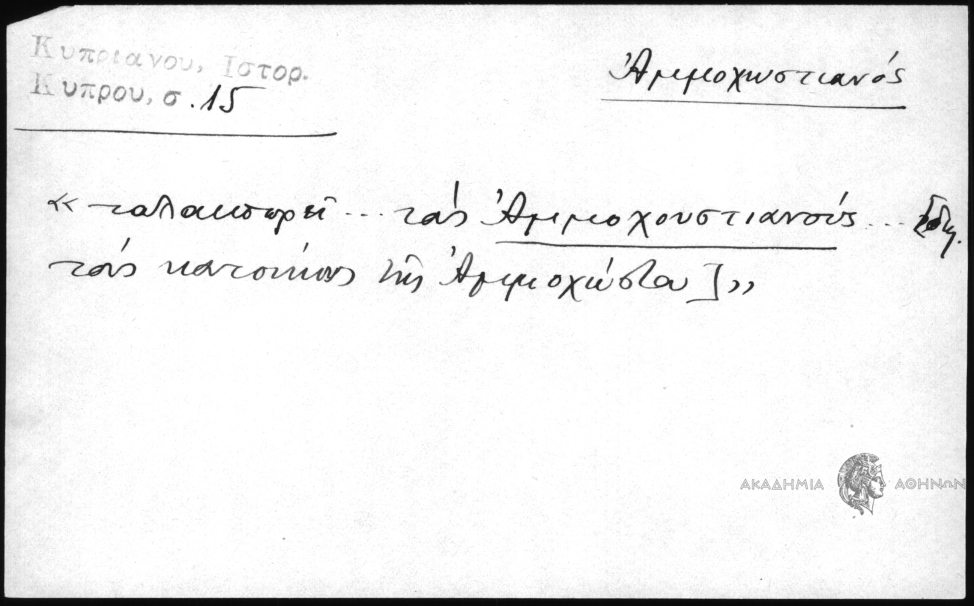 Κυπριανου, Ιστορ.
Κυπρου, σ. 15
Ἀμμοχωστιανός
« ταλαιπωρεῖ ... τοὺς Ἀμμοχουστιανοὺς ... [δηλ.
τοὺς κατοίκους τῆς Ἀμμοχώστου] »
ΑΚΑΔΗΜΙΑ ΑΘΗΝΩΝ